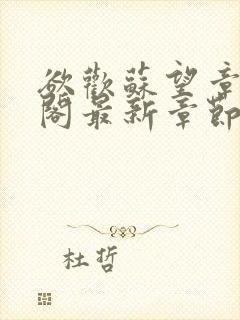 欲歡蘇望章
閣最新章節
杜哲